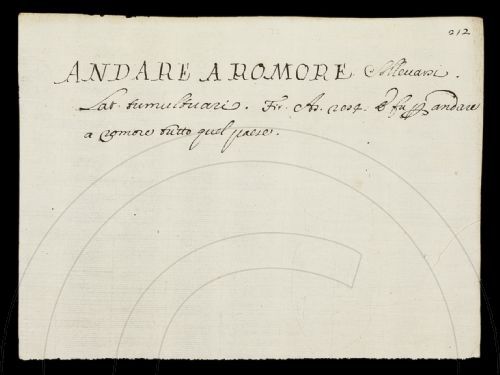 212
ANDARE A ROMORE. Sollevarsi.
Lat. tumultuari. Fr. As. e fu andare
a romore tutto quel paese.